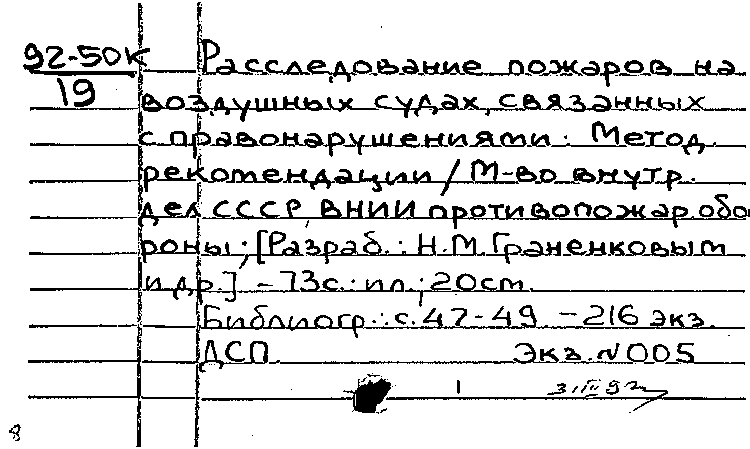 92-50К
19
Расследование пожаров на
воздушных судах, связанных
с правонарушениями: Метод.
рекомендации / М-во внутр.
дел СССР, ВНИИ противопожар. обо
роны; [Разраб.: Н.М. Граненковым
и др.] - 73с.: ил.; 20см.
Библиогр.: с. 47-49 - 216 экз.
ДСП Экз. №005
1
8